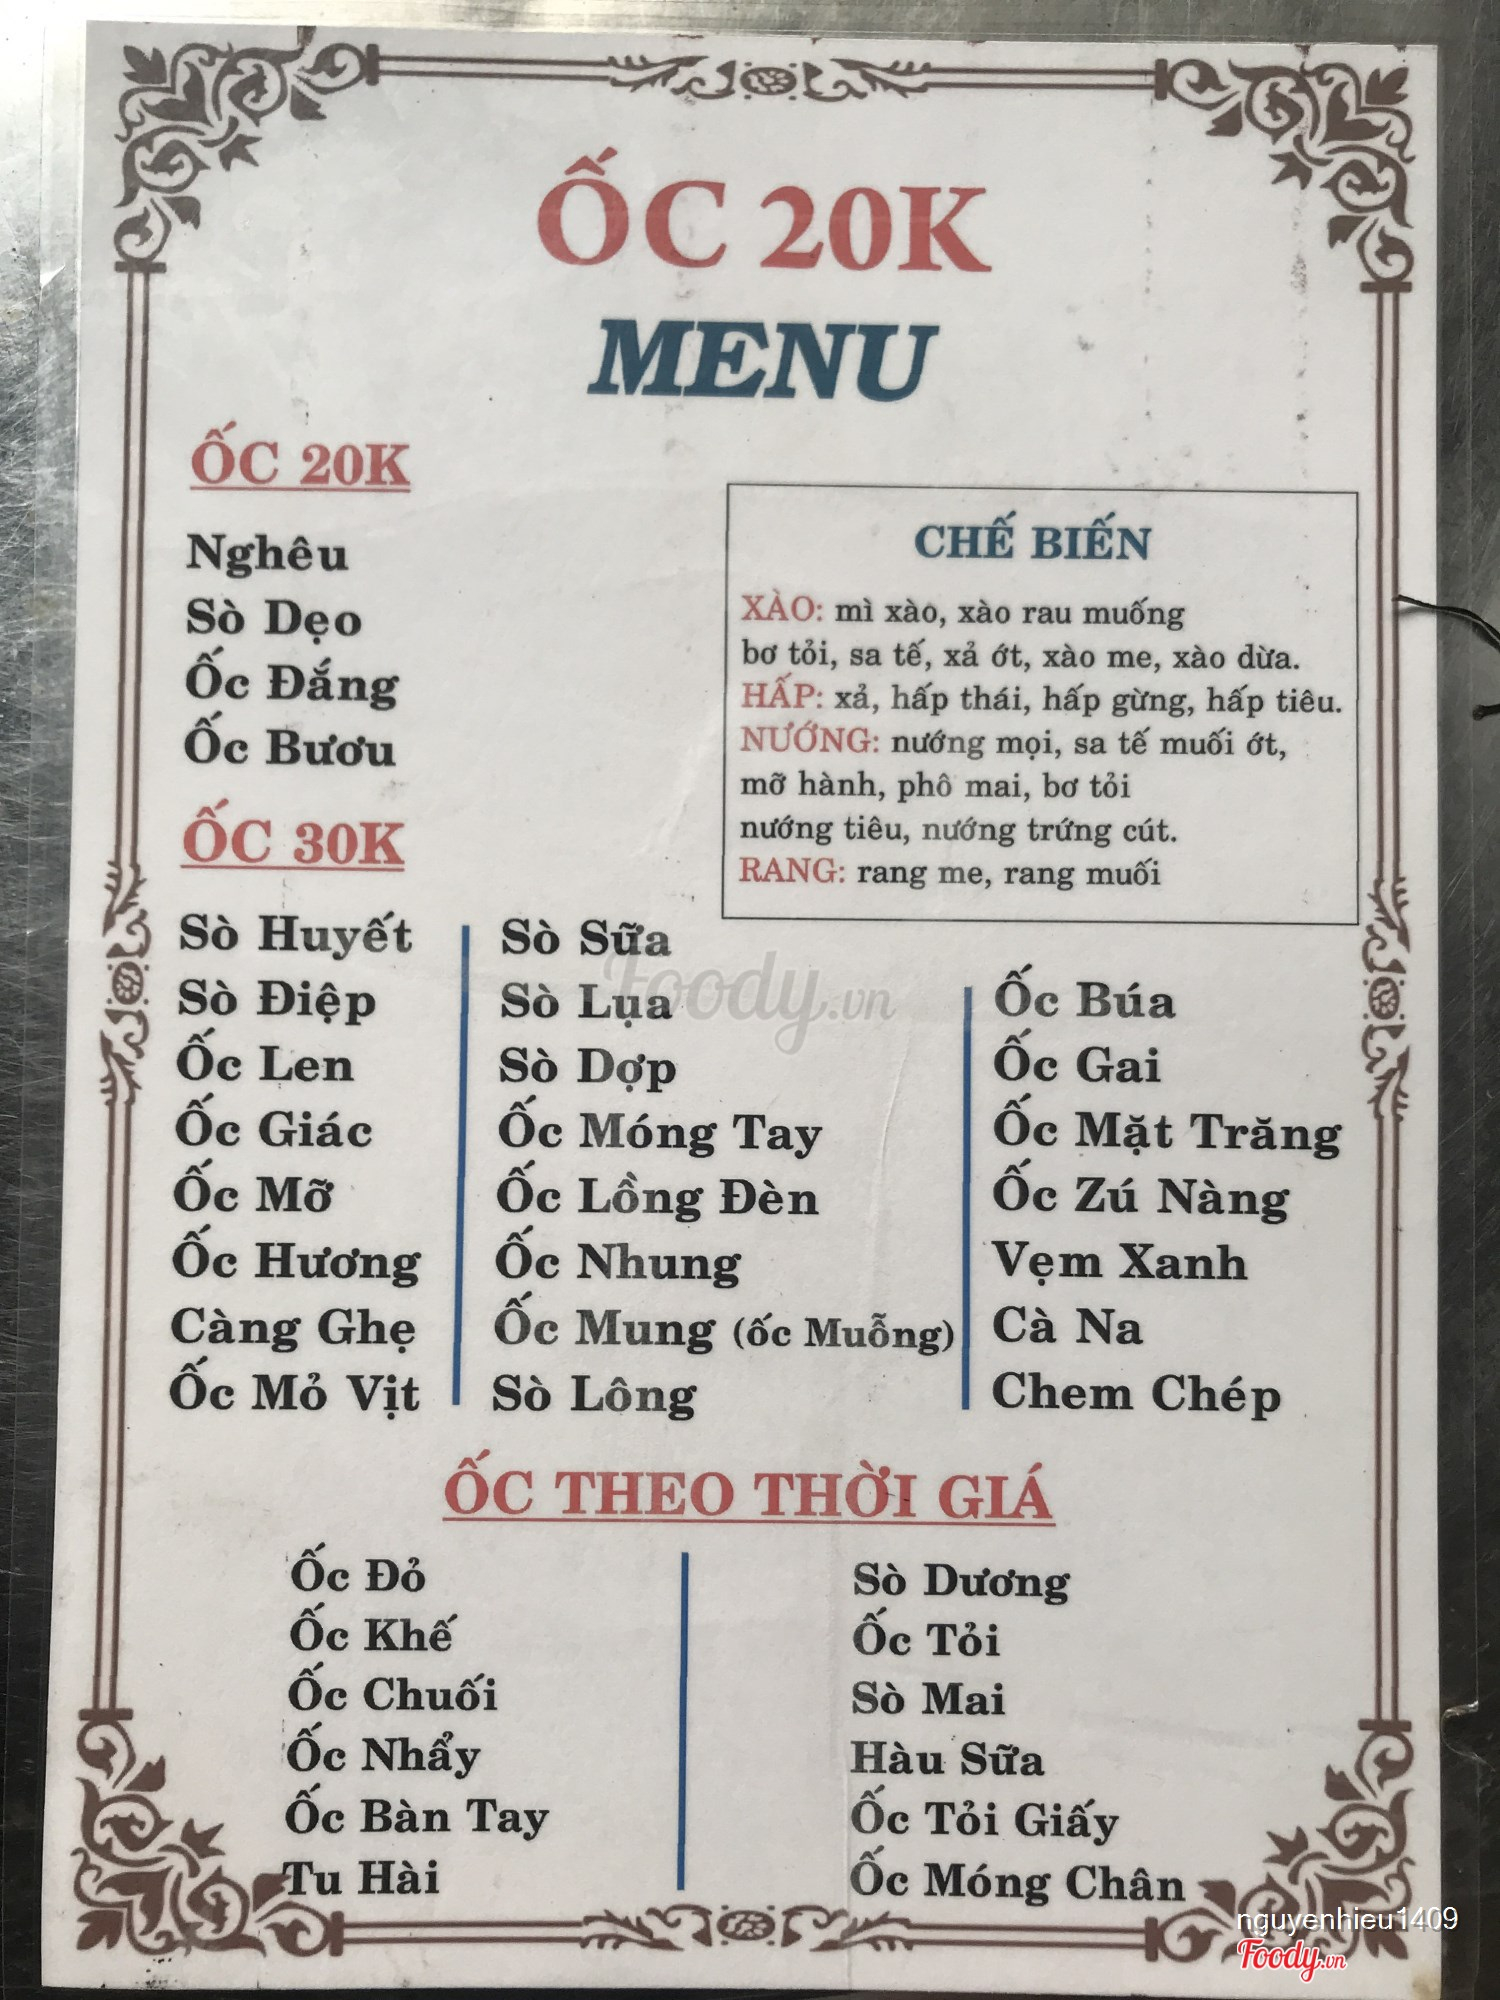 ỐC 20K
MENU
ỐC 20K
Nghêu
Sò Dẹo
Ốc Đắng
Ốc Bươu
CHẾ BIẾN
XÀO: mì xào, xào rau muống
bơ tỏi, sa tế, xả ớt, xào me, xào dừa.
HẤP: xả, hấp thái, hấp gừng, hấp tiêu.
NƯỚNG: nướng mọi, sa tế muối ớt,
mỡ hành, phô mai, bơ tỏi
nướng tiêu, nướng trứng cút.
RANG: rang me, rang muối
ỐC 30K
Sò Huyết
Sò Điệp
Ốc Len
Ốc Giác
Ốc Mỡ
Ốc Hương
Càng Ghẹ
Ốc Mỏ Vịt
Sò Sữa
Sò Lụa
Sò Dợp
Ốc Móng Tay
Ốc Lồng Đèn
Ốc Nhung
Ốc Mung (ốc Muỗng)
Sò Lông
Ốc Búa
Ốc Gai
Ốc Mặt Trăng
Ốc Zú Nàng
Vẹm Xanh
Cà Na
Chem Chép
Foody.vn
ỐC THEO THỜI GIÁ
Ốc Đỏ
Ốc Khế
Ốc Chuối
Ốc Nhẩy
Ốc Bàn Tay
Tu Hài
Sò Dương
Ốc Tỏi
Sò Mai
Hàu Sữa
Ốc Tỏi Giấy
Ốc Móng Chân
nguyenhieu1409
Foody.vn